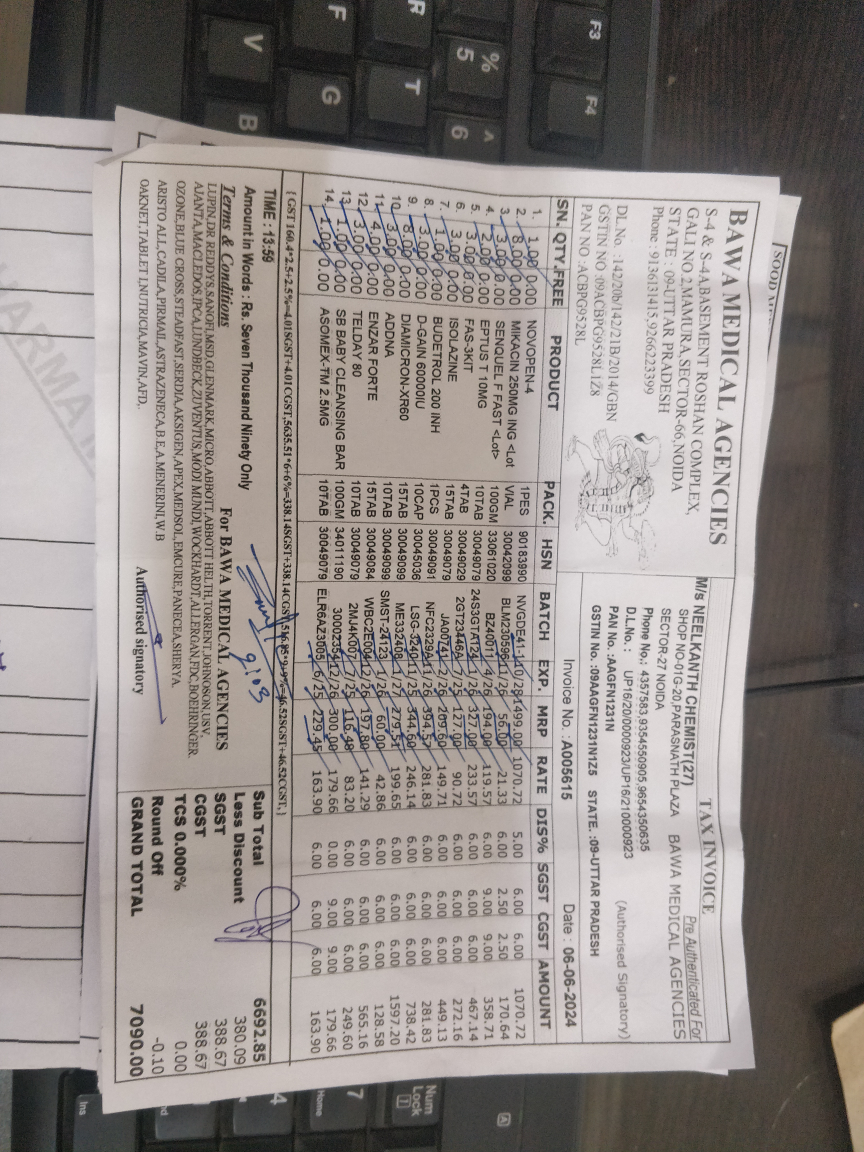 BAWA MEDICAL AGENCIES
S-4 & S-4A,BASEMENT ROSHAN COMPLEX,
GALI NO 2,MAMURA,SECTOR-66,NOIDA
STATE : 09-UTTAR PRADESH
Phone : 9136131415,9266223399
DL.No. :142/20b/142/21B/2014/GBN
GSTIN NO :09ACBPG9528L1Z8
PAN NO :ACBPG9528L
TAX INVOICE
Pre Authenticated For
BAWA MEDICAL AGENCIES
(Authorised Signatory)
M/s NEELKANTH CHEMIST(27)
SHOP NO-01G-20,PARASNATH PLAZA
SECTOR-27 NOIDA
Phone No.: 4357583,9354550905,9654350635
D.L.No. : UP16/20/0000923/UP16/210000923
PAN No. :AAGFN1231N
GSTIN No. :09AAGFN1231N1Z5 STATE. :09-UTTAR PRADESH
Invoice No. : A005615 Date : 06-06-2024
SN. QTY.FREE PRODUCT PACK. HSN BATCH EXP. MRP RATE DIS% SGST CGST AMOUNT
1. 1.00 0.00 NOVOPEN-4 1PES 90183990 NVGDE41-1 10/28 1499.00 1070.72 5.00 6.00 6.00 1070.72
2. 8.00 0.00 MIKACIN 250MG ING <Lot VIAL 30042099 BLM230596 11/26 56.00 21.33 6.00 2.50 2.50 170.64
3. 3.00 0.00 SENQUEL F FAST <Lot> 100GM 33061020 BZ40011 4/26 194.00 119.57 6.00 9.00 9.00 358.71
4. 2.00 0.00 EPTUS T 10MG 10TAB 30049079 24S3GTA124 1/26 327.00 233.57 6.00 6.00 6.00 467.14
5. 3.00 0.00 FAS-3KIT 4TAB 30049029 2GT23446A 7/25 127.00 90.72 6.00 6.00 6.00 272.16
6. 3.00 0.00 ISOLAZINE 15TAB 30049079 JA00741 2/26 149.71 6.00 6.00 6.00 449.13
7. 1.00 0.00 BUDETROL 200 INH 1PCS 30049091 NFC2329A 11/26 394.57 281.83 6.00 6.00 6.00 281.83
8. 3.00 0.00 D-GAIN 60000IU 10CAP 30045036 LSG-3240 11/25 344.60 246.14 6.00 6.00 6.00 738.42
9. 8.00 0.00 DIAMICRON-XR60 15TAB 30049099 ME332408 1/27 279.51 199.65 6.00 6.00 6.00 1597.20
10. 3.00 0.00 ADDNA 10TAB 30049099 SMST-24123 1/26 60.00 42.86 6.00 6.00 6.00 128.58
11. 4.00 0.00 ENZAR FORTE 15TAB 30049084 WBC2E004 12/26 197.80 141.29 6.00 6.00 6.00 565.16
12. 3.00 0.00 TELDAY 80 10TAB 30049079 2MJ4K007 2/25 116.48 83.20 6.00 6.00 6.00 249.60
13. 1.00 0.00 SB BABY CLEANSING BAR 100GM 34011190 30002354 12/26 300.00 179.66 0.00 9.00 9.00 179.66
14. 1.00 0.00 ASOMEX-TM 2.5MG 10TAB 30049079 ELR6A23005 6/25 229.45 163.90 6.00 6.00 6.00 163.90
{ GST 160.4*2.5+2.5%=4.01SGST+4.01CGST,5635.51*6+6%=338.14SGST+338.14CGST,516.85*9+9%=46.52SGST+46.52CGST,}
TIME : 13:59
Amount in Words : Rs. Seven Thousand Ninety Only
Terms & Conditions
For BAWA MEDICAL AGENCIES
LUPIN,DR REDDYS,SANOFI,MSD,GLENMARK,MICRO,ABBOTT,ABBOTT HELTH,TORRENT,JOHNOSON,USV,
AJANTA,MACLEDOS,IPCA,LUNDBECK,ZUVENTUS,MODI MUNDI,WOCKHARDT,ALLEROAN,FDC,BOEHRINGER
OZONE,BLUE CROSS,STEADFAST,SERDIA,AKSIGEN,APEX,MEDSOL,EMCURE,PANECEA,SHERYA
ARISTO ALL,CADILA,PIRMAIL,ASTRAZENECA,B.E,A.MENERINI,W.B
OAKNET,TABLET I,NUTRICIA,MAVIN,AFD,
Authorised signatory
9103
Sub Total 6692.85
Less Discount 380.09
SGST 388.67
CGST 388.67
TCS 0.000% 0.00
Round Off -0.10
GRAND TOTAL 7090.00
F3
F4
%
5
^
6
R
T
F
G
V
B
Num
Lock
7
Home
4
Ins